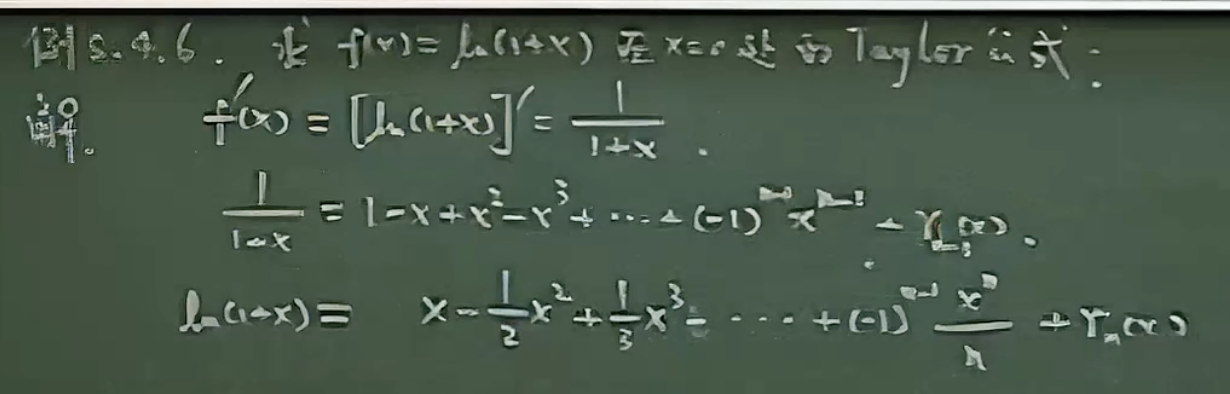 例 5.4.6. 求 f(x) = ln(1+x) 在 x=0 处的 Taylor 公式:
解. f'(x) = [ln(1+x)]' = \frac{1}{1+x}.
\frac{1}{1+x} = 1-x+x^2-x^3+⋯+(-1)^{n-1}x^{n-1}+r_{n-1}(x).
ln(1+x) = x-\frac{1}{2}x^2+\frac{1}{3}x^3-⋯+(-1)^{n-1}\frac{x^n}{n}+r_n(x)